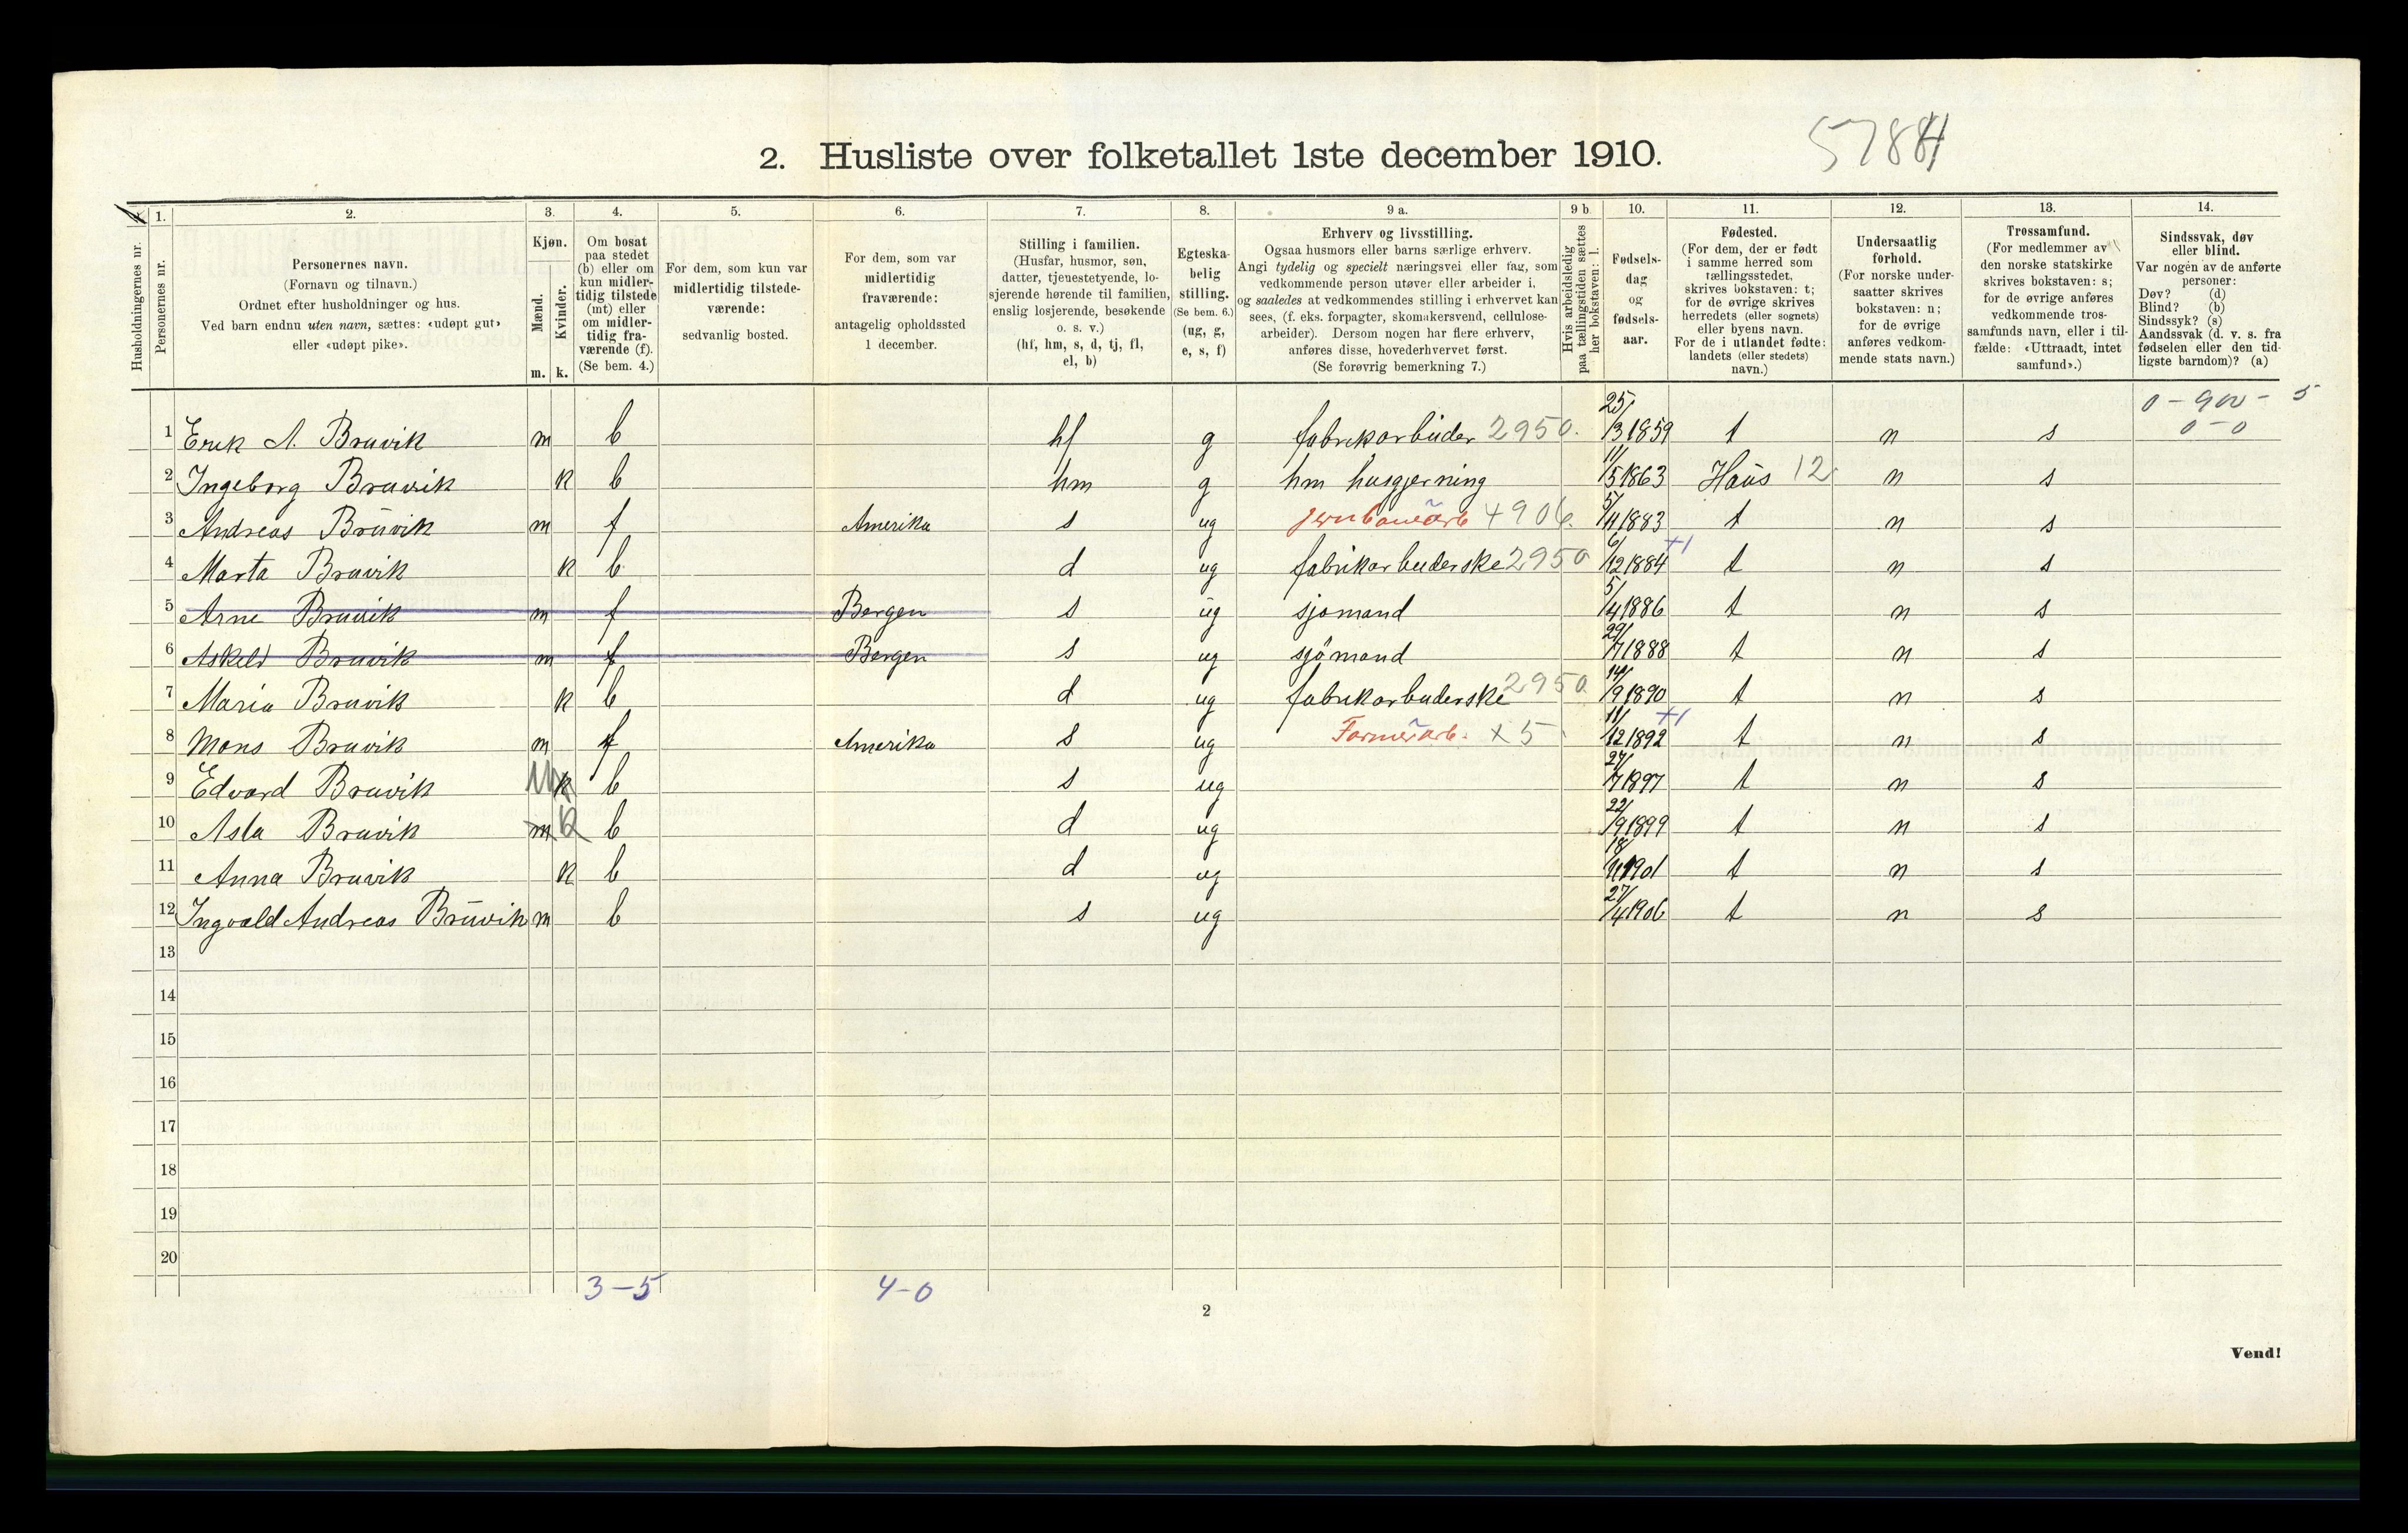 2. Husliste over folketallet 1ste december 1910.
1. 2. 3. 4. 5. 6. 7. 8. 9 a. 9 b. 10. 11. 12. 13. 14.
Husholdningernes nr.
Personernes nr.
Personernes navn.
(Fornavn og tilnavn.)
Ordnet efter husholdninger og hus.
Ved barn endnu uten navn, sættes: «udøpt gut»
eller «udøpt pike».
Kjøn.
Mænd.
Kvinder.
m. k.
Om bosat
paa stedet
(b) eller om
kun midler-
tidig tilstede
(mt) eller
om midler-
tidig fra-
værende (f).
(Se bem. 4.)
For dem, som kun var
midlertidig tilstede-
værende:
sedvanlig bosted.
For dem, som var
midlertidig
fraværende:
antagelig opholdssted
1 december.
Stilling i familien.
(Husfar, husmor, søn,
datter, tjenestetyende, lo-
sjerende hørende til familien,
enslig losjerende, besøkende
o. s. v.)
(hf, hm, s, d, tj, fl,
el, b)
Egteska-
belig
stilling.
(Se bem. 6.)
(ug, g,
e, s, f)
Erhverv og livsstilling.
Ogsaa husmors eller barns særlige erhverv.
Angi tydelig og specielt næringsvei eller fag, som
vedkommende person utøver eller arbeider i,
og saaledes at vedkommendes stilling i erhvervet kan
sees, (f. eks. forpagter, skomakersvend, cellulose-
arbeider). Dersom nogen har flere erhverv,
anføres disse, hovederhvervet først.
(Se forøvrig bemerkning 7.)
Hvis arbeidsledig
paa tællingstiden sættes
her bokstaven: l.
Fødsels-
dag
og
fødsels-
aar.
Fødested.
(For dem, der er født
i samme herred som
tællingsstedet,
skrives bokstaven: t;
for de øvrige skrives
herredets (eller sognets)
eller byens navn.
For de i utlandet fødte:
landets (eller stedets)
navn.)
Undersaatlig
forhold.
(For norske under-
saatter skrives
bokstaven: n;
for de øvrige
anføres vedkom-
mende stats navn.)
Trossamfund.
(For medlemmer av
den norske statskirke
skrives bokstaven: s;
for de øvrige anføres
vedkommende tros-
samfunds navn, eller i til-
fælde: «Uttraadt, intet
samfund».)
Sindssvak, døv
eller blind.
Var nogen av de anførte
personer:
Døv? (d)
Blind? (b)
Sindssyk? (s)
Aandssvak (d. v. s. fra
fødselen eller den tid-
ligste barndom)? (a)
0 - 900 - 5
0 - 0
1 Erik A. Bruvik m b hf g fabrikarbeider 2950. 25/3 1859 t n s
2 Ingeborg Bruvik k b hm g hm husgjerning 11/5 1863 Haus 12 n s
3 Andreas Bruvik m f Amerika s ug Jernbanearb 4906. 5/4 1883 t n s
4 Marta Bruvik k b d ug fabrikarbeiderske 2950 6/12 1884 +1 t n s
5 Arne Bruvik m f Bergen s ug sjømand 5/4 1886 t n s
6 Askeld Bruvik m f Bergen s ug sjömand 29/7 1888 t n s
7 Maria Bruvik k b d ug fabrikarbeiderske 2950 14/9 1890 t n s
8 Mons Bruvik m f Amerika s ug Farmerarb. x 5 11/12 1892 +1 t n s
9 Edvard Bruvik M k b s ug 27/7 1897 t n s
10 Asla Bruvik m k b d ug 22/9 1899 t n s
11 Anna Bruvik k b d ug 18/11 1901 t n s
12 Ingvald Andreas Bruvik m b s ug 27/4 1906 t n s
13
14
15
16
17
18
19
20
3-5 4-0
2
Vend!